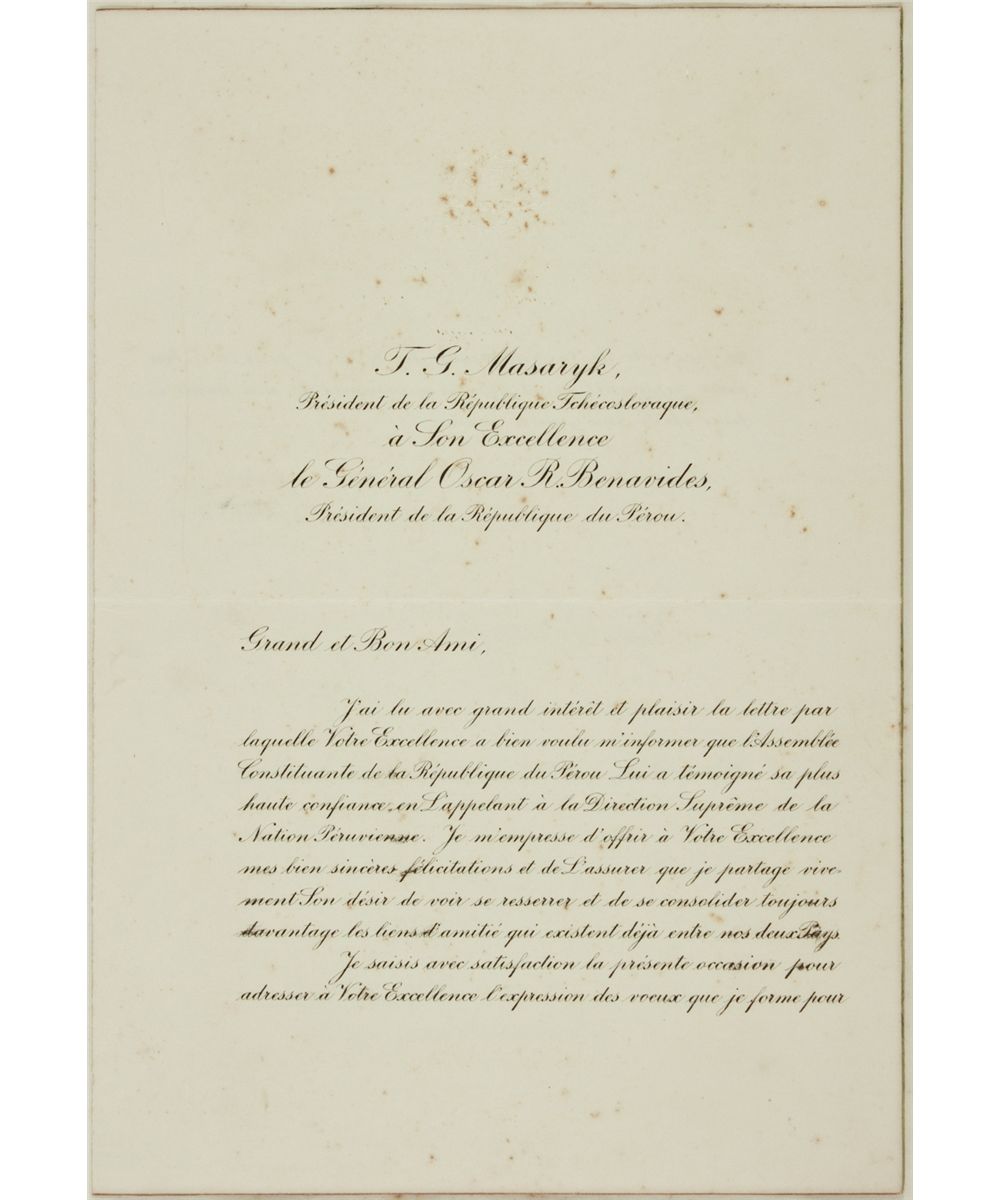 T. G. Masaryk,
Président de la République Tchécoslovaque,
à Son Excellence
le Général Oscar R. Benavides,
Président de la République du Pérou.
Grand et Bon Ami,
J'ai lu avec grand intérêt et plaisir la lettre par
laquelle Votre Excellence a bien voulu m'informer que l'Assemblée
Constituante de la République du Pérou Lui a témoigné sa plus
haute confiance, en L'appelant à la Direction Suprême de la
Nation Péruvienne. Je m'empresse d'offrir à Votre Excellence
mes bien sincères félicitations et de L'assurer que je partage vive-
ment Son désir de voir se resserrer et de se consolider toujours
davantage les liens d'amitié qui existent déjà entre nos deux Pays.
Je saisis avec satisfaction la présente occasion pour
adresser à Votre Excellence l'expression des voeux que je forme pour